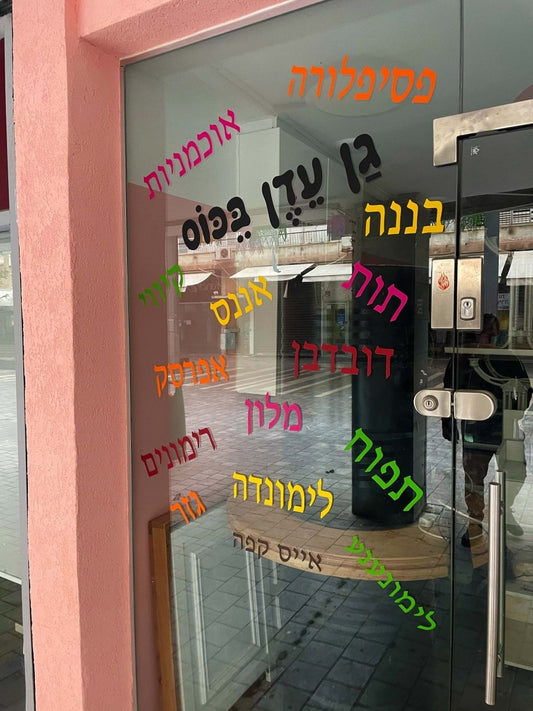 פסיפלורה
אוכמניות
גַן עֵדֶן בְּכּוֹס
בננה
קיווי
אננס
תות
דובדבן
אפרסק
מלון
רימונים
תפוח
לימונדה
גזר
אייס קפה
לימונענע